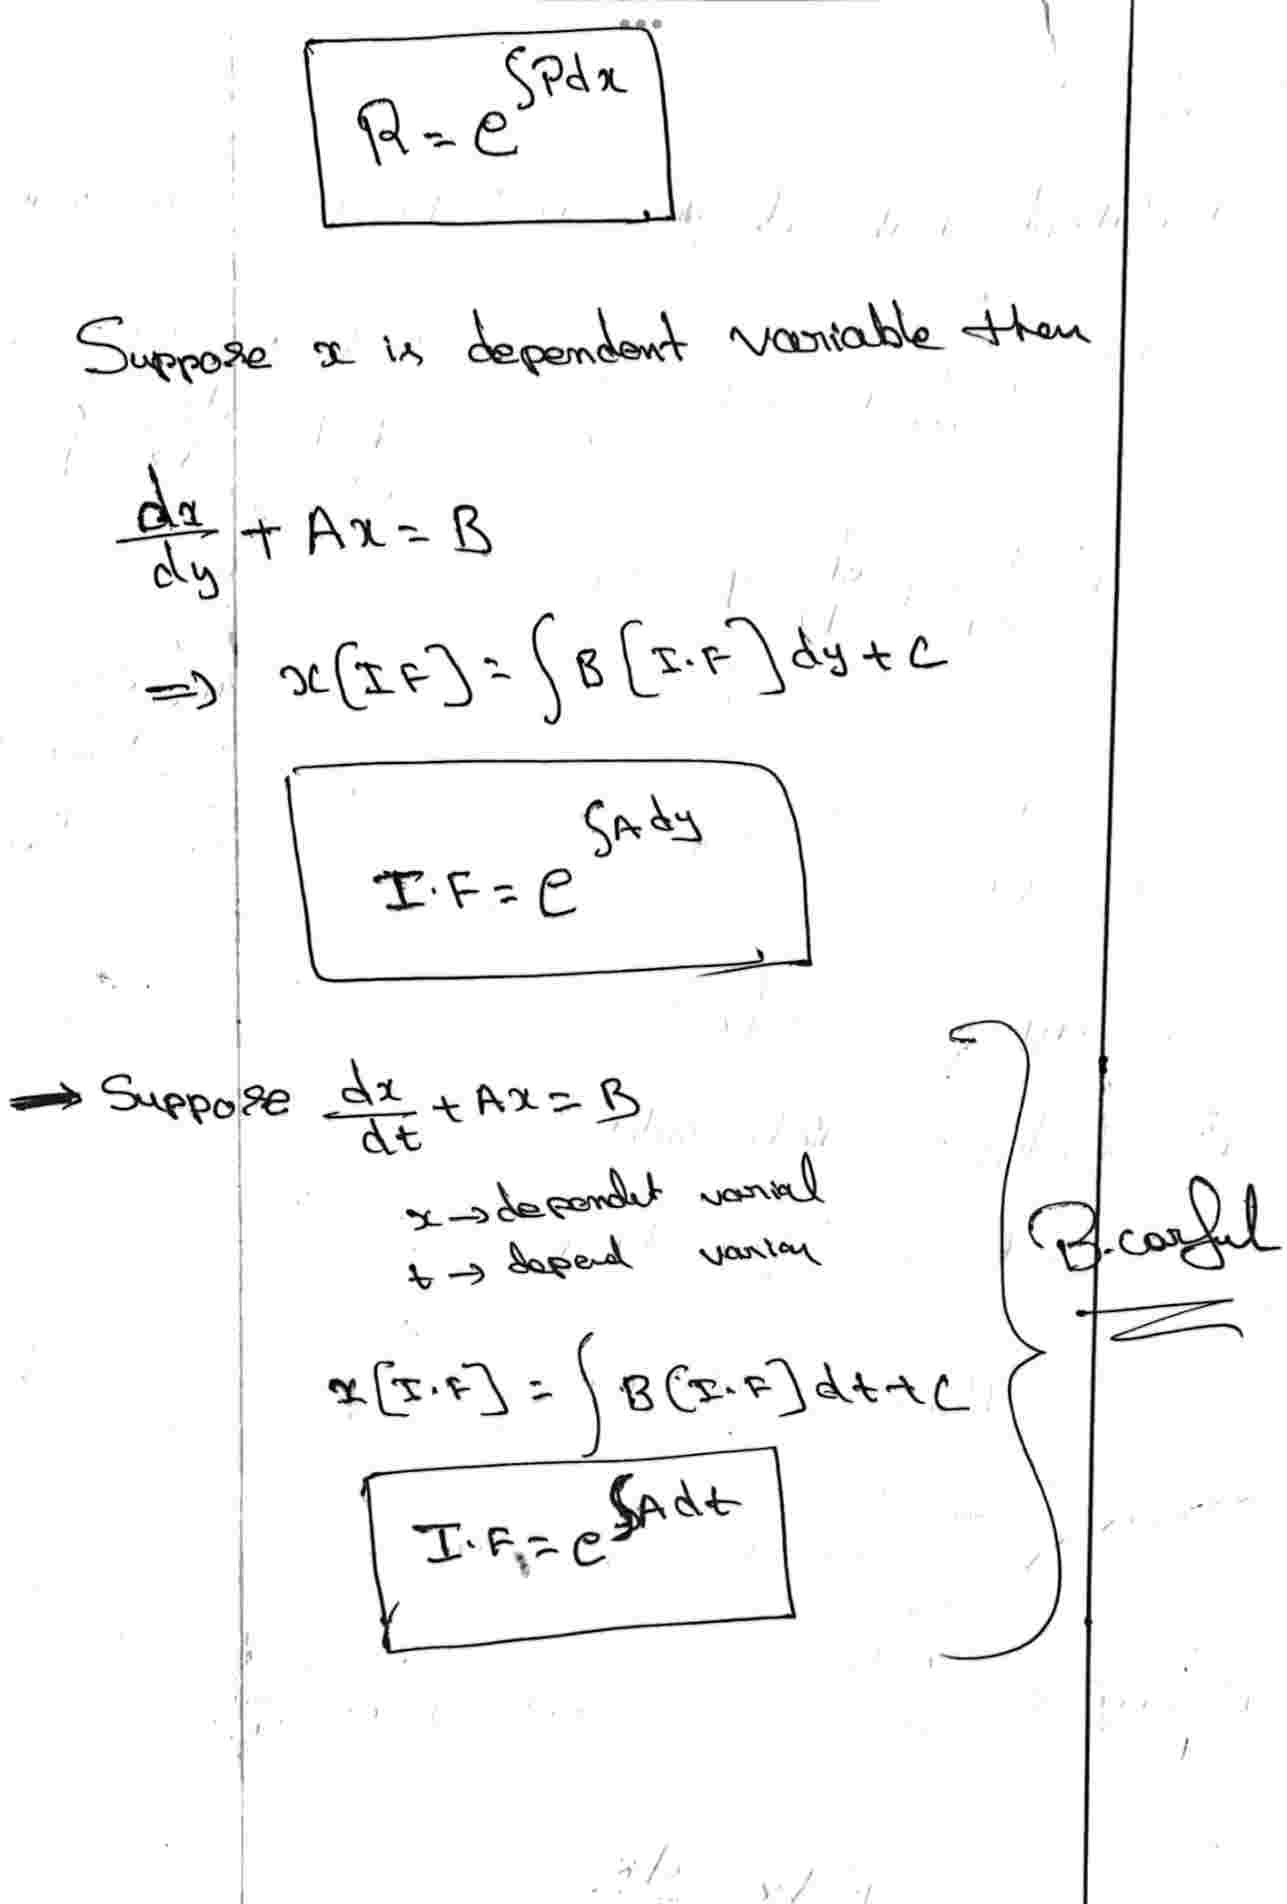 R = e^∫Pdx
Suppose x is dependent variable then
dx/dy + Ax = B
⇒ x[IF] = ∫B[I.F]dy + C
I.F = e^∫A dy
→ Suppose dx/dt + Ax = B
x → dependet varial
t → depend varian
B.carful
x[I.F] = ∫B[I.F]dt + C
I.F = e^∫Adt